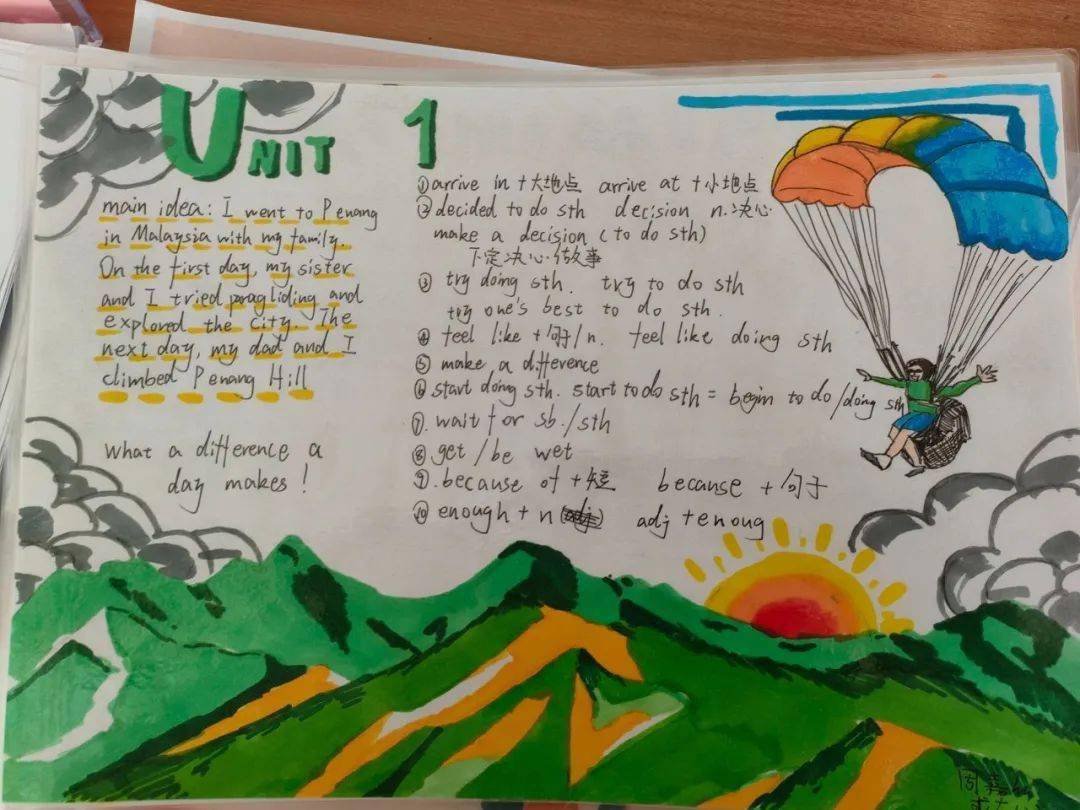 UNIT 1
main idea: I went to Penang
in Malaysia with my family.
On the first day, my sister
and I tried paragliding and
explored the city. The
next day, my dad and I
climbed Penang Hill
what a difference a
day makes!
①arrive in +大地点 arrive at +小地点
②decided to do sth decision n.决心
make a decision (to do sth)
下定决心做事
③ try doing sth. try to do sth
try one's best to do sth.
④ feel like +句子/n. feel like doing sth
⑤ make a difference
⑥ start doing sth. start to do sth = begin to do/doing sth
⑦. wait for sb./sth
⑧ get/be wet
⑨.because of +短 because +句子
⑩ enough + n adj +enoug
周嘉